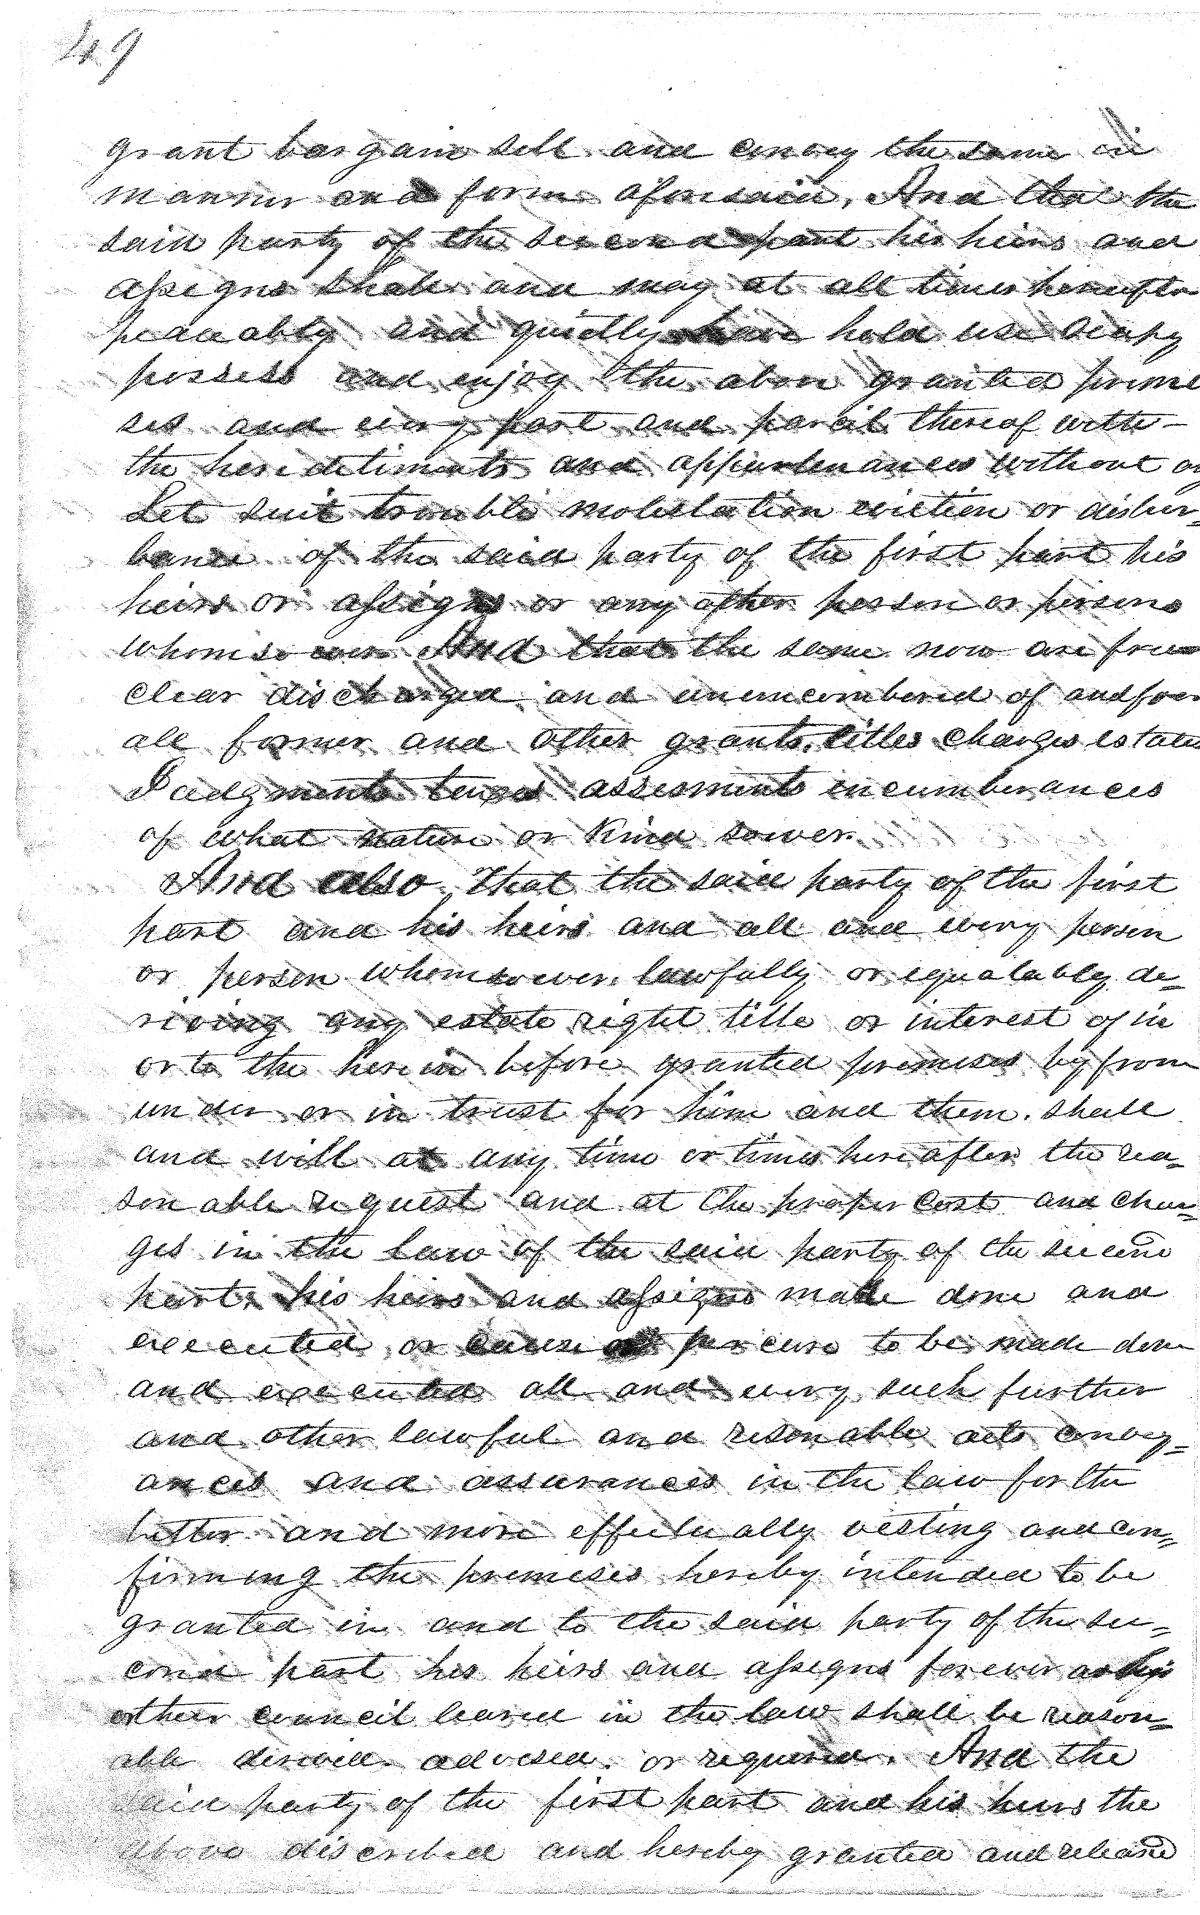 49
grant bargain sell and convey the same in
manner and form aforesaid, And that the
said party of the second part his heirs and
assigns shall and may at all times hereafter
peaceably and quietly have hold use occupy
possess and enjoy the above granted premi
ses and every part and parcil thereof with-
the hereditiments and appurtenances without
Let suit trouble molestation eviction or distur=
bance of the said party of the first part his
heirs or assigns or any other person or persons
whomsoever And that the same now are free
clear discharged and unencombered of and from
all former and other grants, titles charges estates
Judgments taxes assesments incumberances
of what nature or kind soever.
And also, that the said party of the first
part and his heirs and all and every person
or person whomsoever lawfully or equatably de=
riving any estate right title or interest of in
or to the herein before granted premises by from
under or in trust for him and them. shall
and will at any time or times hereafter the rea=
sonable request and at the proper cost and char=
ges in the law of the said party of the second
part, his heirs and assigns made done and
executed or cause or procure to be made done
and executed all and every such further
and other lawful and resonable acts convey=
ances and assurances in the law for the
better and more effectually vesting and con=
firming the premises hereby intended to be
granted in and to the said party of the se=
cond part his heirs and assigns forever as his
or their council leared in the law shall be reason=
able devised advised or required. And the
said party of the first part and his heirs the
above discribed and hereby granted and released